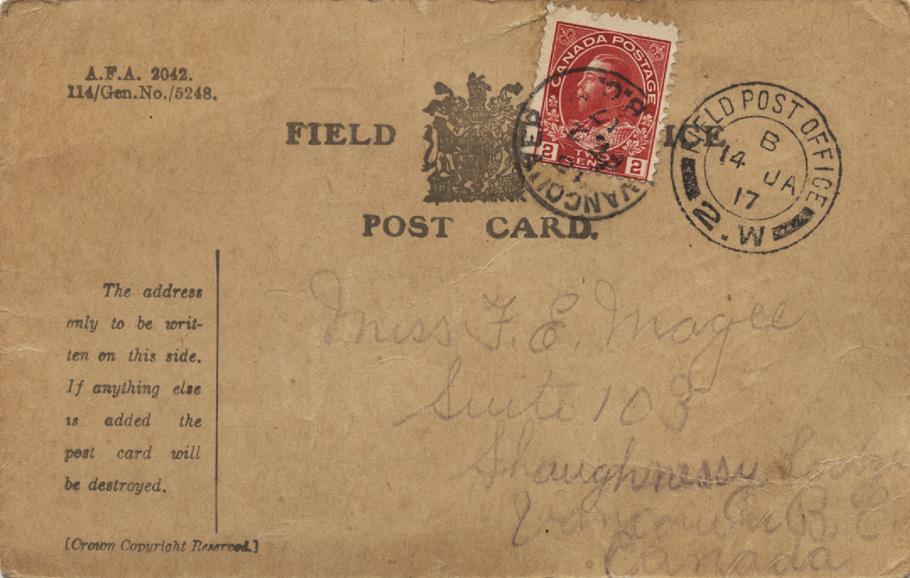 A.F.A. 2042.
114/Gen.No./5248.
FIELD
ICE
POST CARD.
CANADA POSTAGE
2 TWO CENTS 2
VANCOUVER
B.C.
FIELD POST OFFICE
B
14 JA
17
2.W
The address
only to be writ-
ten on this side.
If anything else
is added the
post card will
be destroyed.
[Crown Copyright Reserved.]
Miss F. E. Magee
Suite 103
Shaughnessy
Vancouver B.C.
Canada